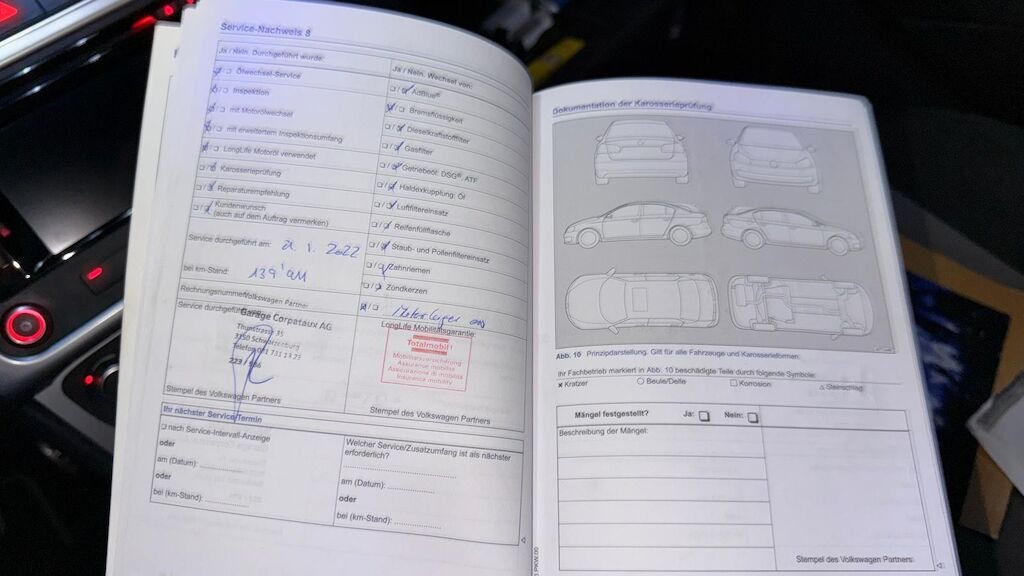 Service-Nachweis 8
Ja / Nein, Durchgeführt wurde:
Ölwechsel-Service
Inspektion
mit Motorölwechsel
mit erweitertem Inspektionsumfang
LongLife Motoröl verwendet
Karosserieprüfung
Reparaturempfehlung
Kundenwunsch
(auch auf dem Auftrag vermerken)
Service durchgeführt am: 21.1.2022
bei km-Stand: 139'
Rechnungsnummer
Volkswagen Partner
Service durchgeführt
Garage Corpataux AG
Thunstrasse 31
3150 Schwarzenburg
Telefon 031 731 13 23
Stempel des Volkswagen Partners
Ja / Nein, Wechsel von:
AdBlue®
Bremsflüssigkeit
Dieselkraftstofffilter
Gasfilter
Getriebeöl: DSG®, ATF
Haldexkupplung: Öl
Luftfiltereinsatz
Reifenfüllflasche
Staub- und Pollenfiltereinsatz
Zahnriemen
Zündkerzen
Motorlager
LongLife Mobilitätsgarantie:
Totalmobil!
Mobilitätsversicherung
Assurance mobilité
Assicurazione di mobilità
Insurance mobility
Stempel des Volkswagen Partners
Ihr nächster Service/Termin
nach Service-Intervall-Anzeige
oder
am (Datum):
oder
bei (km-Stand):
Welcher Service/Zusatzumfang ist als nächster
erforderlich?
am (Datum):
oder
bei (km-Stand):
Dokumentation der Karosserieprüfung
Abb. 10 Prinzipdarstellung: Gilt für alle Fahrzeuge und Karosserieformen.
Ihr Fachbetrieb markiert in Abb. 10 beschädigte Teile durch folgende Symbole:
x Kratzer ○ Beule/Delle □ Korrosion △ Steinschlag
Mängel festgestellt? Ja: Nein:
Beschreibung der Mängel:
Stempel des Volkswagen Partners: